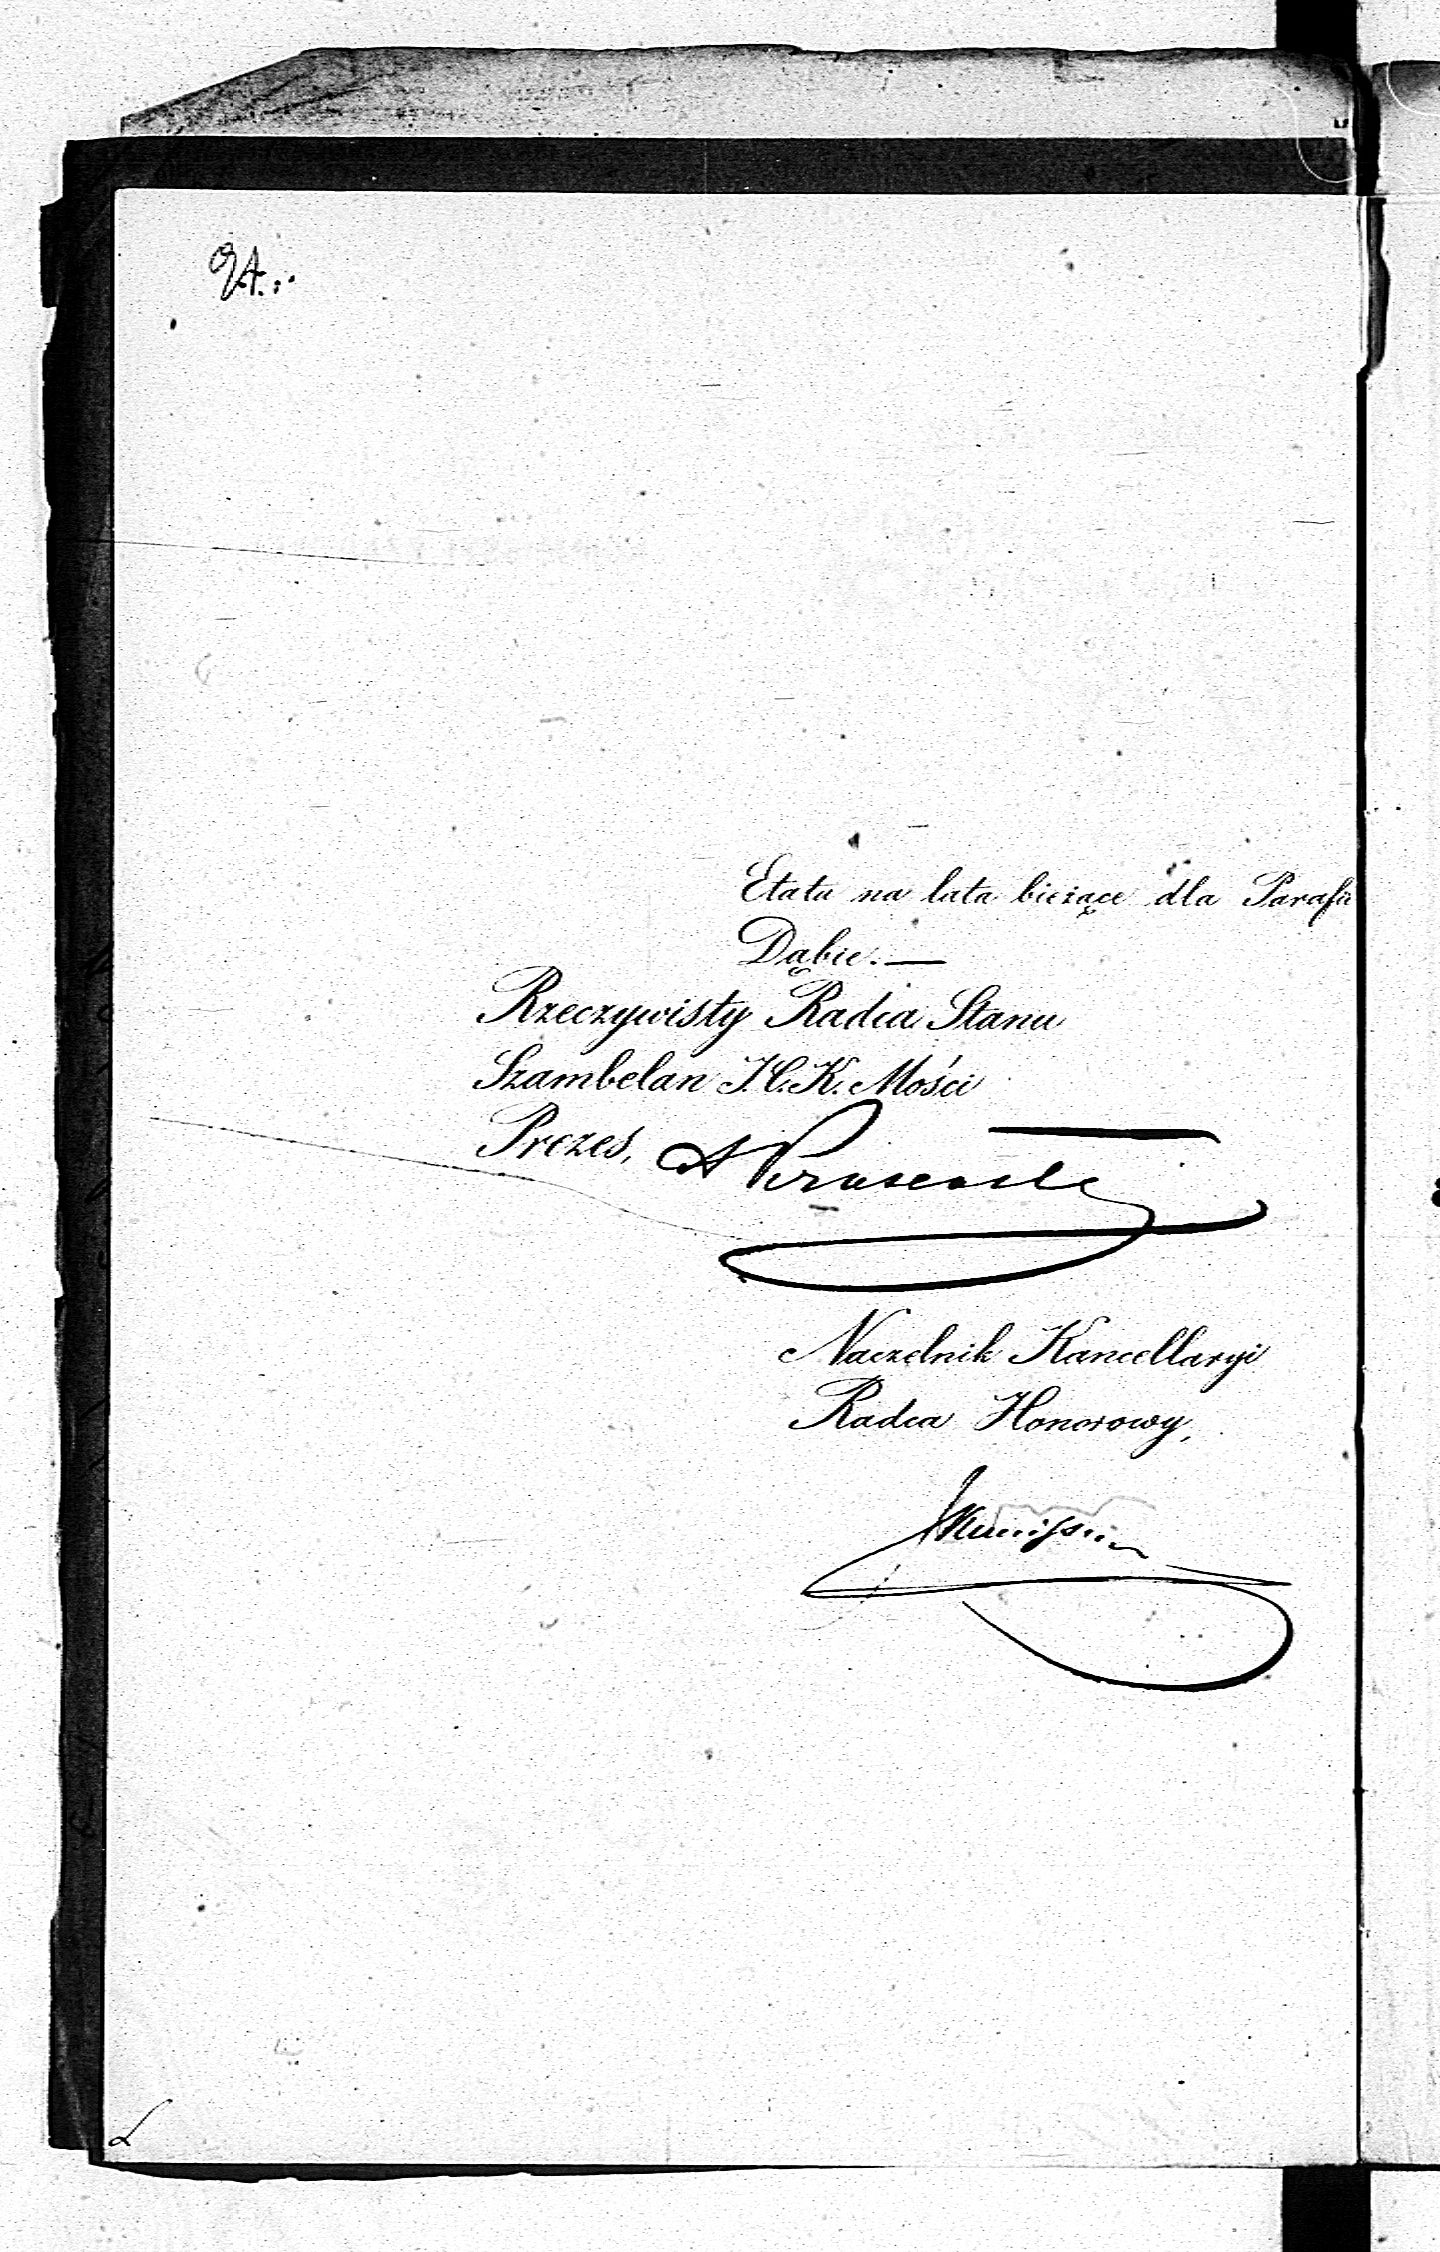 24.
Etatu na lata bieżące dla Parafii
Dąbie. —
Rzeczywisty Radca Stanu
Szambelan J.C.K. Mości
Prezes,
Naczelnik Kancellaryi
Radca Honorowy,